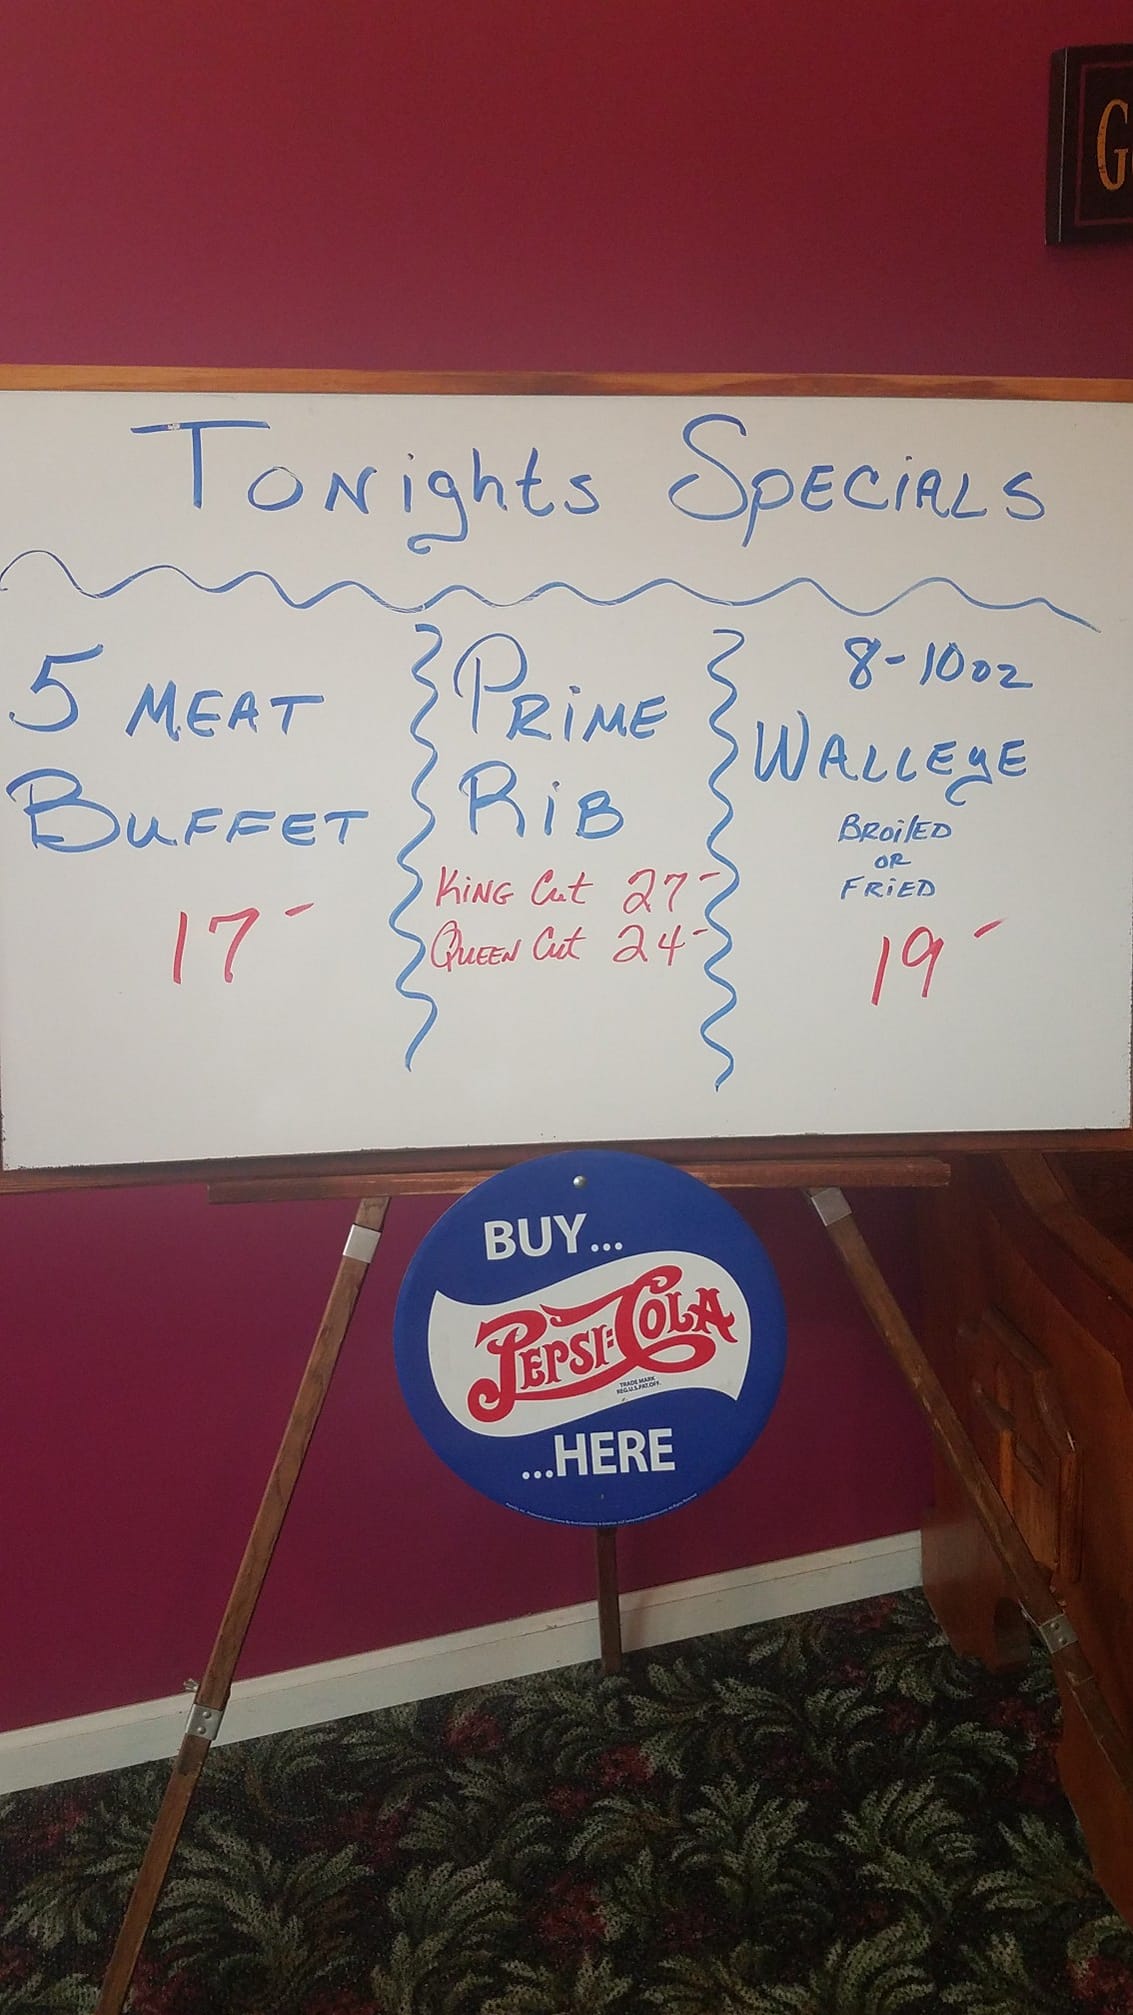 G
Tonights Specials
5 MEAT
BUFFET
17-
PRIME
RIB
KING Cut 27-
QUEEN Cut 24-
8-10oz
WALLEYE
BROILED
OR
FRIED
19-
BUY...
PEPSI:COLA
TRADE MARK
REG.U.S.PAT.OFF.
...HERE